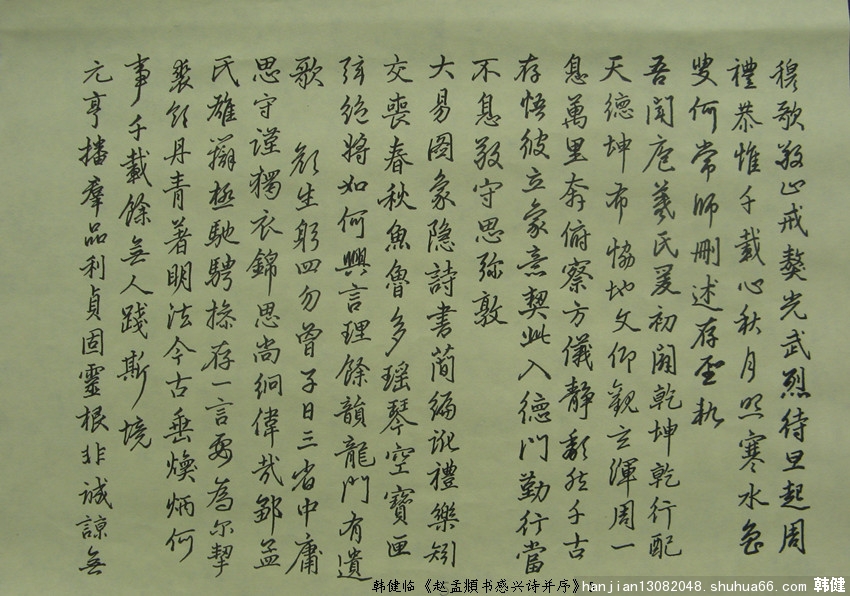 穆歌敬止戒獒光武烈待旦起周
禮恭惟千載心秋月照寒水魯
叟何常師刪述存聖軌
吾聞庖羲氏爰初闢乾坤乾行配
天德坤布協地文仰觀玄渾周一
息萬里奔俯察方儀靜頹然千古
存悟彼立象意契此入德門勤行當
不息敬守思弥敦
大易圖象隐詩書簡編訛禮樂矧
交喪春秋魚魯多瑶琴空寶匣
弦絕將如何興言理餘韻龍門有遺
歌 顏生躬四勿曾子日三省中庸
思守謹獨衣錦思尚絅偉哉鄒孟
氏雄辯極馳騁操存一言要為尔挈
裘領丹青著明法今古垂煥炳何
事千載餘無人踐斯境
元亨播羣品利貞固靈根非诚諒無
韩健临《赵孟頫书感兴诗并序》
hanjian13082048.shuhua66.com 韩健